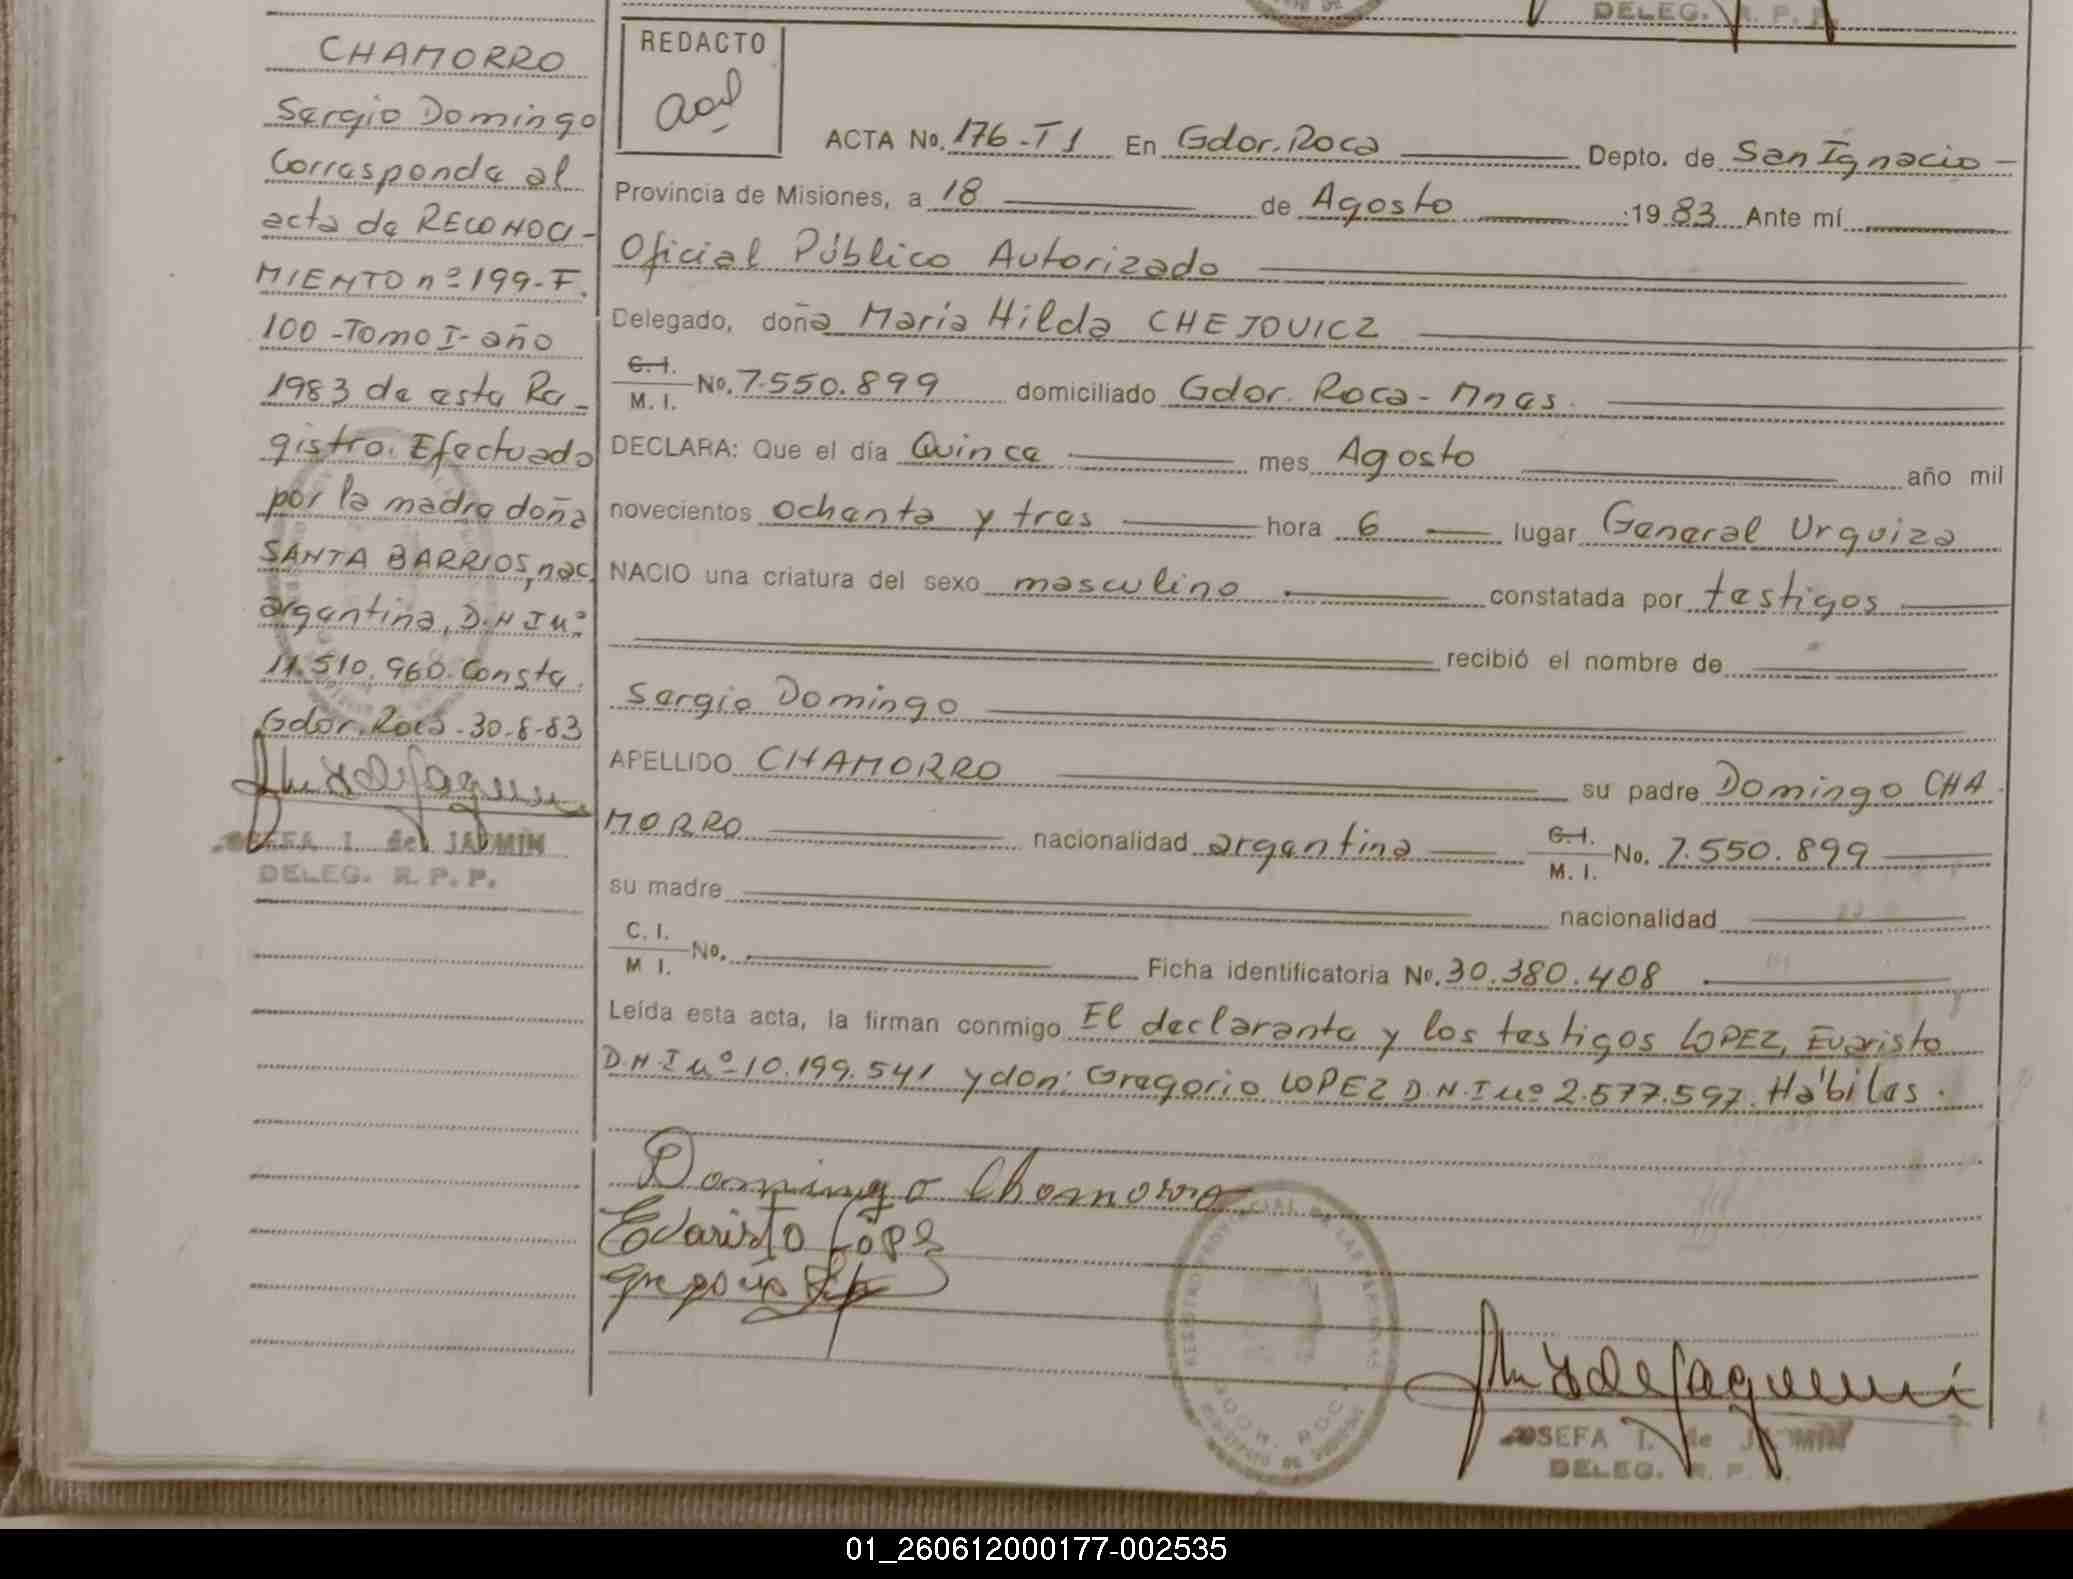 DELEG. R. P. P.
CHAMORRO
Sergio Domingo
Corresponde al
acta de RECONOCI-
MIENTO nº 199-F.
100-Tomo I-año
1983 de este Re-
gistro. Efectuado
por la madre doña
SANTA BARRIOS, nac.
argentina, D.N.I nº
11.510.960. Conste.
Gdor. Roca-30-8-83
I. de
DELEG. R. P. P.
REDACTO
ACTA No. 176-T1 En Gdor. Roca Depto. de San Ignacio-
Provincia de Misiones, a 18 de Agosto 1983 Ante mí
Oficial Público Autorizado
Delegado, doña María Hilda CHEJOVICZ
C.I.
M. I. No. 7.550.899 domiciliado Gdor. Roca-Mnes.
DECLARA: Que el día Quince mes Agosto año mil
novecientos ochenta y tres hora 6 lugar General Urquiza
NACIO una criatura del sexo masculino constatada por testigos
recibió el nombre de
Sergio Domingo
APELLIDO CHAMORRO su padre Domingo CHA
MORRO nacionalidad argentina C.I. M. I. No. 7.550.899
su madre nacionalidad
C. I.
M I. No. Ficha identificatoria No. 30.380.408
Leída esta acta, la firman conmigo El declarante y los testigos LOPEZ, Evaristo
D.N.I nº 10.199.541 y don: Gregorio LOPEZ D.N.I nº 2.577.597. Hábiles.
Domingo Chamorro
Evaristo López
Gregorio
REGISTRO PROVINCIAL DE LAS PERSONAS
I. de
DELEG. R. P.
01_260612000177-002535